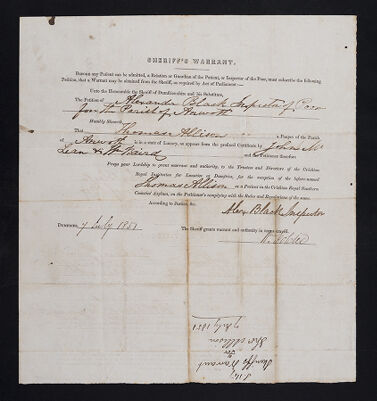 SHERIFF'S WARRANT.
BEFORE any Patient can be admitted, a Relation or Guardian of the Patient, or Inspector of the Poor, must subscribe the following
Petition, that a Warrant may be obtained from the Sheriff, as required by Act of Parliament:—
Unto the Honourable the Sheriff of Dumfriesshire and his Substitute,
The Petition of Alexander Black Inspector of Poor
for the Parish of Anwoth
Humbly Sheweth,
That Thomas Allison a Pauper of the Parish
of Anwoth is in a state of Lunacy, as appears from the prefixed Certificate by John Mc
Lean & Baird and Surgeon
Prays your Lordship to grant warrant and authority, to the Trustees and Directors of the Crichton
Royal Institution for Lunatics at Dumfries, for the reception of the before-named
Thomas Allison as a Patient in the Crichton Royal Southern
Counties' Asylum, on the Petitioner's complying with the Rules and Regulations of the same.
According to Justice, &c.
Alex Black Inspector
DUMFRIES, 7 July 1851 The Sheriff grants warrant and authority in terms craved.
Sheriff's Warrant
for
Thos Allison
7 July 1851